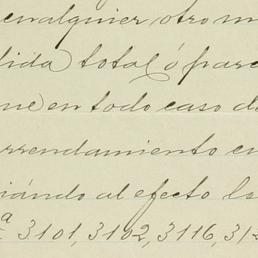 cualquier otro m
dida total ó parc
ne en todo caso d
rrendamiento en
iándo al efecto la
ª 3101, 3102, 3116, 312